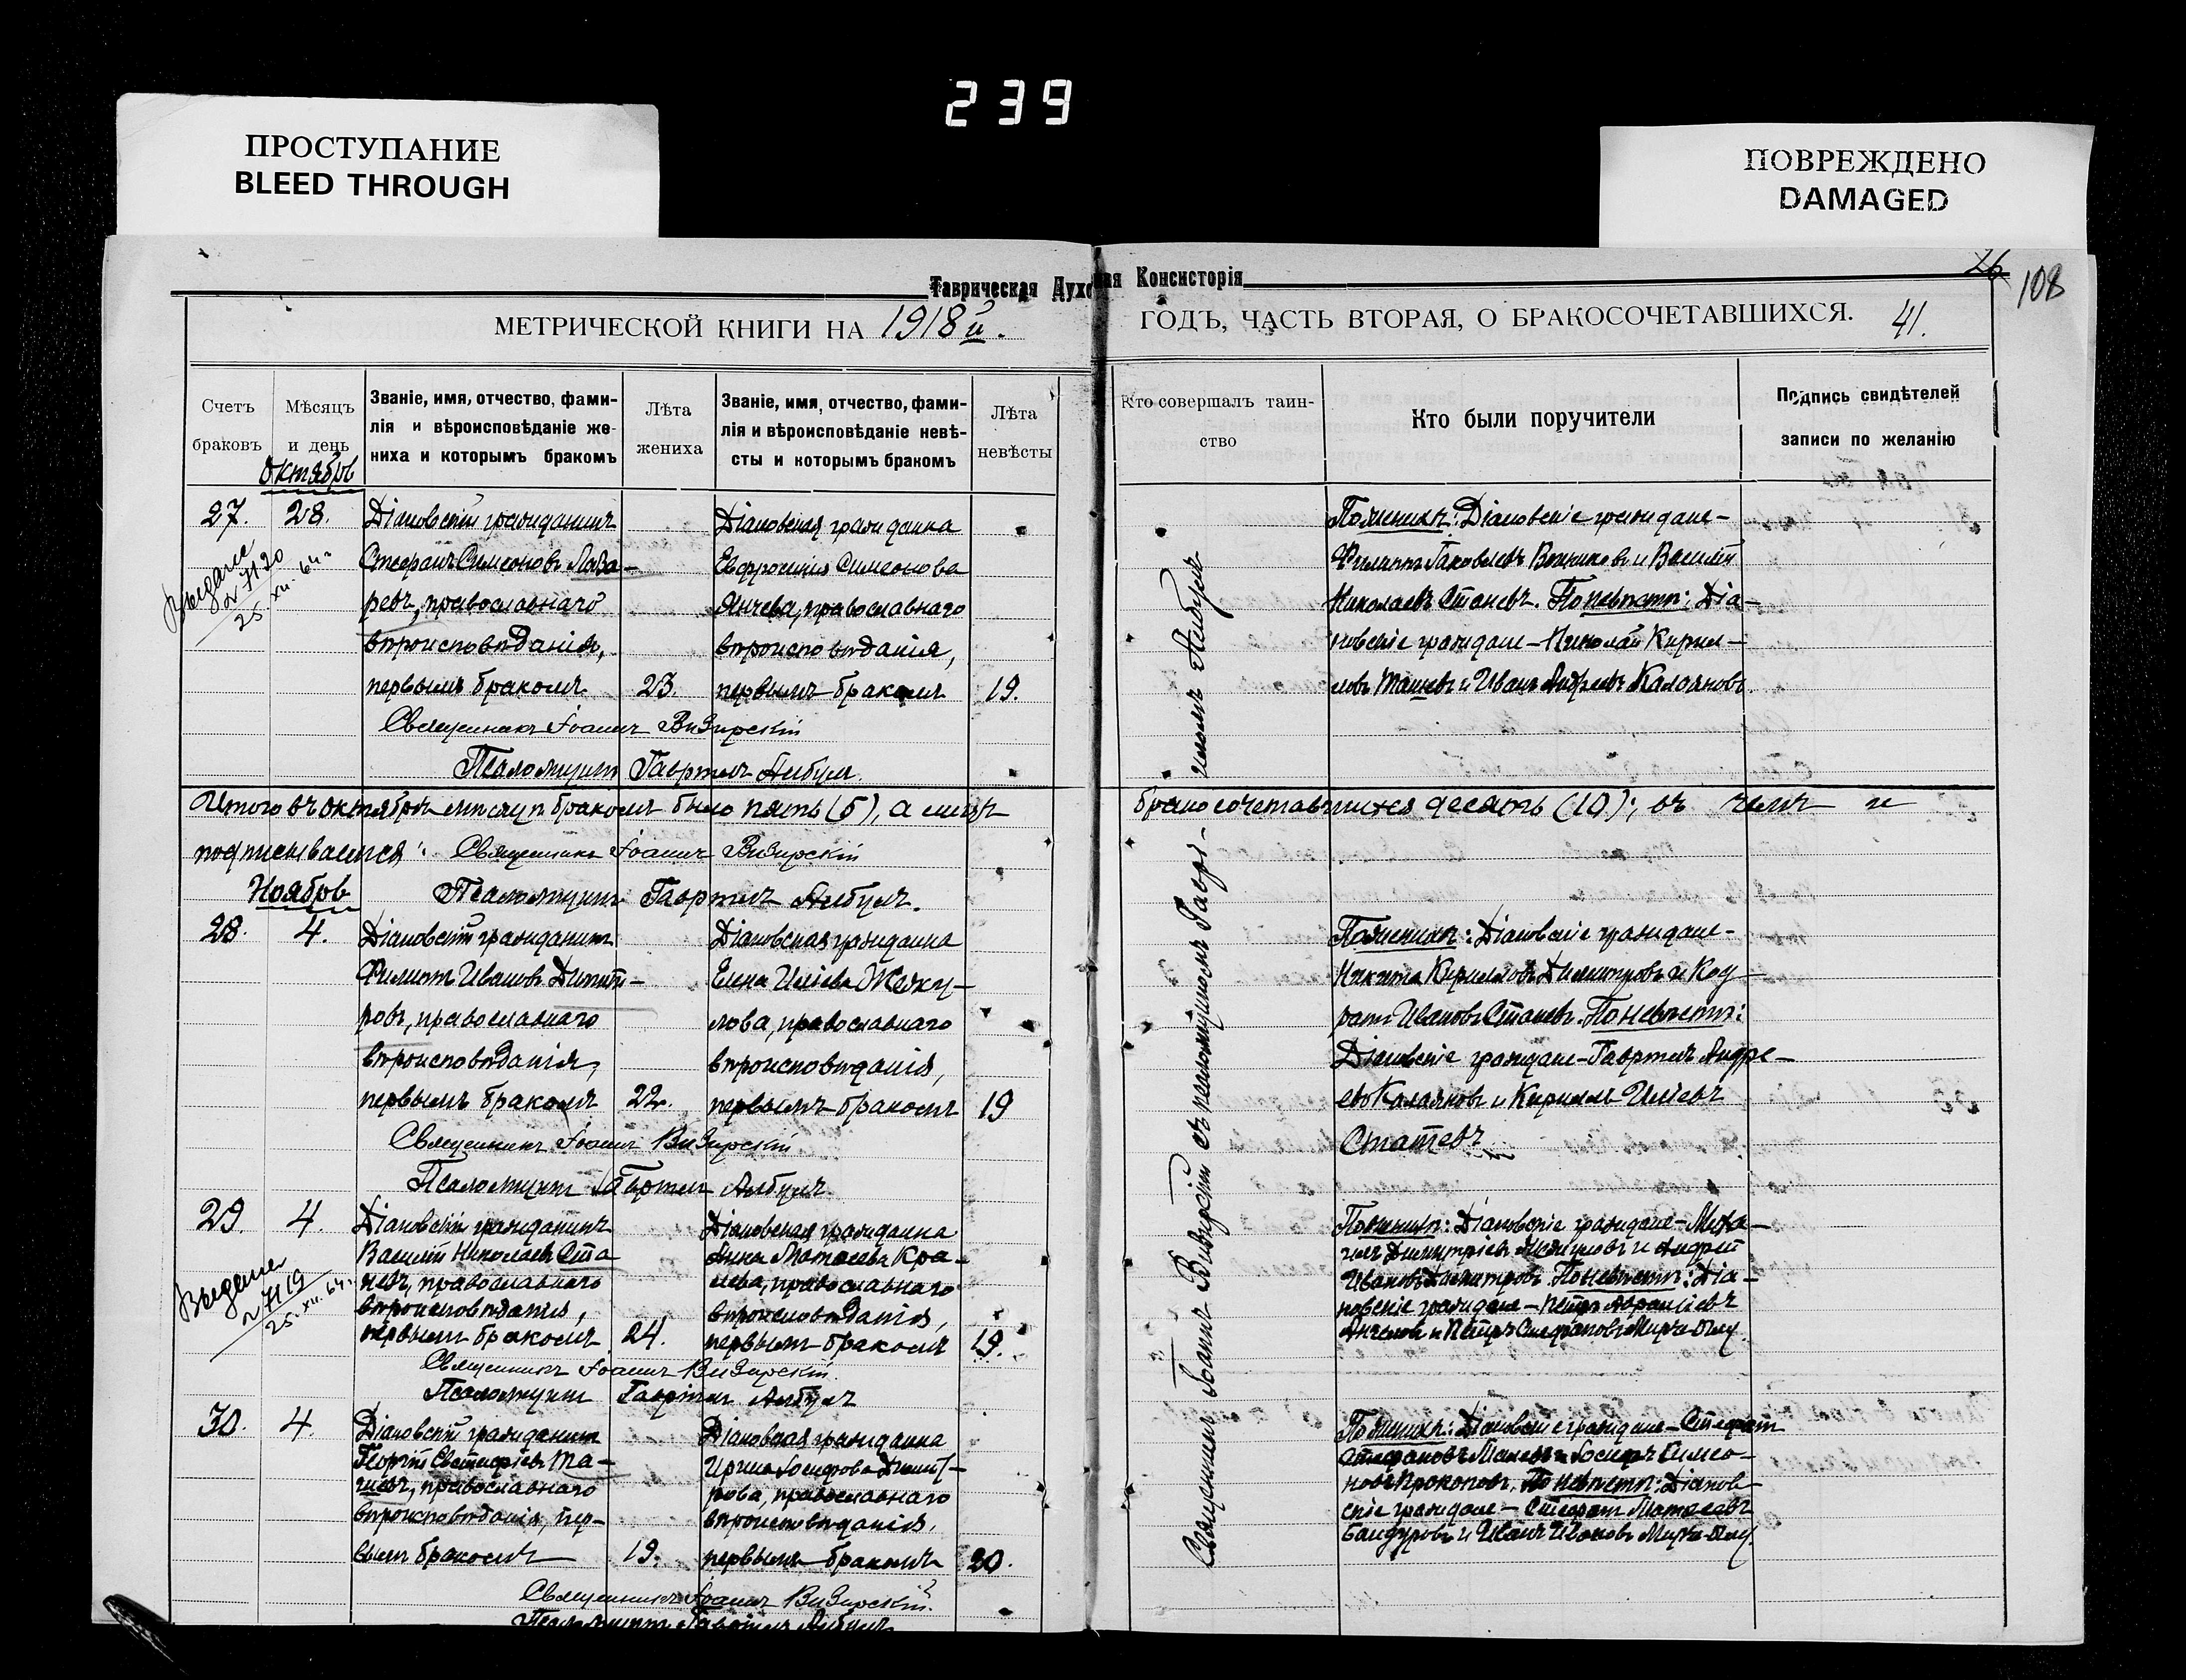 239
ПРОСТУПАНИЕ
BLEED THROUGH
ПОВРЕЖДЕНО
DAMAGED
Таврическая Духовная Консисторія
26
108
МЕТРИЧЕСКОЙ КНИГИ НА 1918й.
ГОДЪ, ЧАСТЬ ВТОРАЯ, О БРАКОСОЧЕТАВШИХСЯ. 41.
Счетъ браковъ
Мѣсяцъ и день
Званіе, имя, отчество, фами-
лія и вѣроисповѣданіе же-
ниха и которымъ бракомъ
Лѣта жениха
Званіе, имя, отчество, фами-
лія и вѣроисповѣданіе невѣ-
сты и которымъ бракомъ
Лѣта невѣсты
Кто совершалъ таин-
ство
Кто были поручители
Подпись свидѣтелей
записи по желанію
Октябрь
27. 28.
Діановскій гражданинъ
Стефанъ Симеоновъ Лаза-
ревъ, православнаго
вѣроисповѣданія,
первымъ бракомъ 23.
Діановская гражданка
Евфросинія Симеонова
Янчева, православнаго
вѣроисповѣданія,
первымъ бракомъ 19.
По женихѣ: Діановскіе граждане-
Филиппъ Іаковлевъ и Василій
Николаевъ Станевъ. По невѣстѣ: Діа-
новскіе граждане - Николай Кирил-
ловъ Ташевъ и Иванъ Андреевъ Калояновъ.
Выдана
№ 7120
25.XII.64 г.
Священникъ Іоаннъ Визирскій
Псаломщикъ Гавріилъ Албулъ
Итого въ октябрѣ мѣсяцѣ браковъ было пять (5), а лицъ
бракосочетавшихся десять (10); въ чемъ и
подписываемся: Священникъ Іоаннъ Визирскій
Псаломщикъ Гавріилъ Албулъ.
Ноябрь
28. 4.
Діановскій гражданинъ
Филиппъ Ивановъ Димит-
ровъ, православнаго
вѣроисповѣданія,
первымъ бракомъ 22.
Діановская гражданка
Елена Иліева Жеку-
лова, православнаго
вѣроисповѣданія,
первымъ бракомъ 19
По женихѣ: Діановскіе граждане-
Никита Кирилловъ Димитровъ и Код-
ратъ Ивановъ Станевъ. По невѣстѣ:
Діановскіе граждане - Гавріилъ Андре-
евъ Калояновъ и Кириллъ Иліевъ
Статевъ
Священникъ Іоаннъ Визирскій
Псаломщикъ Гавріилъ Албулъ.
29. 4.
Діановскій гражданинъ
Василій Николаевъ Ста-
невъ, православнаго
вѣроисповѣданія,
первымъ бракомъ 24.
Діановская гражданка
Анна Матѳеева Кра-
лева, православнаго
вѣроисповѣданія,
первымъ бракомъ 19.
По женихѣ: Діановскіе граждане - Миха-
илъ Димитріевъ и Андрей
Ивановъ Димитровъ. По невѣстѣ: Діа-
новскіе граждане - Петръ
и Петръ Стефановъ
Выдана
№ 7119
25.XII.64 г.
Священникъ Іоаннъ Визирскій.
Псаломщикъ Гавріилъ Албулъ
30. 4.
Діановскій гражданинъ
Георгій Та-
шевъ, православнаго
вѣроисповѣданія, пер-
вымъ бракомъ 19.
Діановская гражданка
Ирина Іосифова Димит-
рова, православнаго
вѣроисповѣданія,
первымъ бракомъ 20.
По женихѣ: Діановскіе граждане - Стефанъ
Стефановъ и Іосифъ Симео-
новъ Прокоповъ. По невѣстѣ: Діанов-
скіе граждане - Стефанъ Матѳеевъ
Бандуровъ и Иванъ Ивановъ
Священникъ Іоаннъ Визирскій.
Псаломщикъ Гавріилъ Албулъ
Священникъ Іоаннъ Визирскій съ псаломщикомъ Гаврі-
иломъ Албулъ